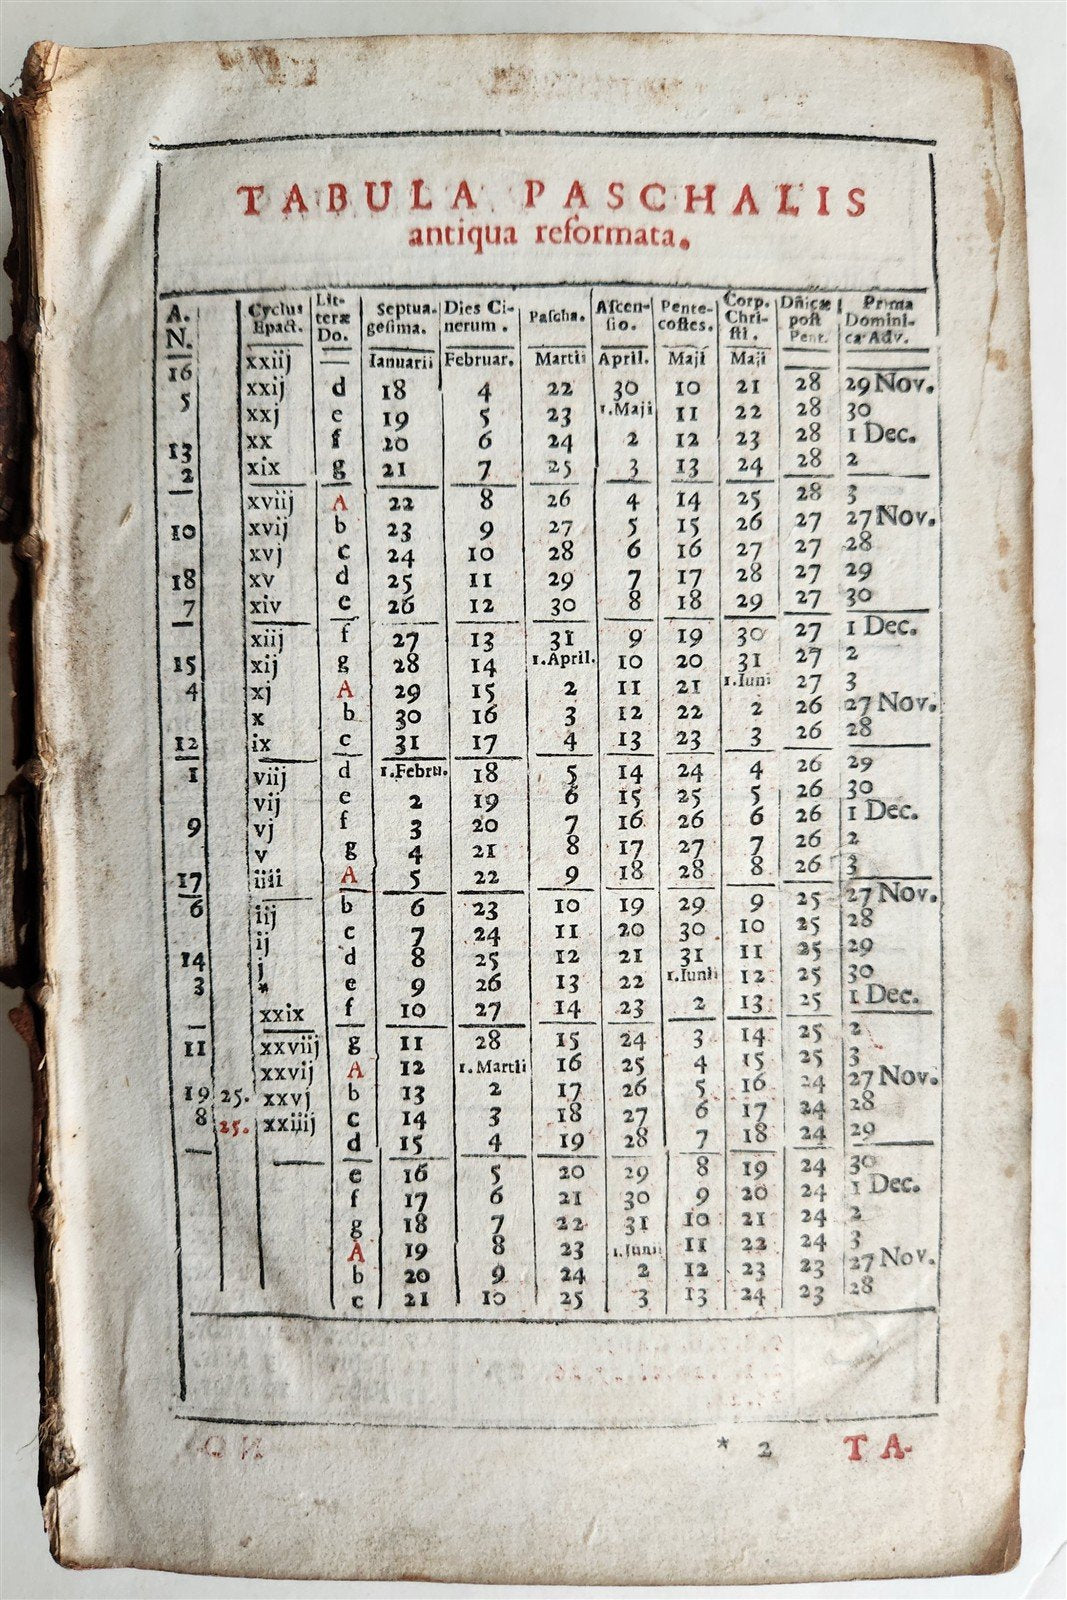 TABULA PASCHALIS
antiqua reformata.
A. N. Cyclus Epact. Litteræ Do. Septuagesima. Dies Cinerum. Pascha. Ascensio. Pentecostes. Corp. Christi. Dñicæ post Pent. Prima Dominica Adv.
xxiij Ianuarii Februar. Martii April. Maji Maji
16 xxij d 18 4 22 30 10 21 28 29 Nov.
5 xxj e 19 5 23 1.Maji 11 22 28 30
xx f 20 6 24 2 12 23 28 1 Dec.
13
2 xix g 21 7 25 3 13 24 28 2
xviij A 22 8 26 4 14 25 28 3
10 xvij b 23 9 27 5 15 26 27 27 Nov.
xvj c 24 10 28 6 16 27 27 28
18 xv d 25 11 29 7 17 28 27 29
7 xiv e 26 12 30 8 18 29 27 30
xiij f 27 13 31 9 19 30 27 1 Dec.
15 xij g 28 14 1.April. 10 20 31 27 2
4 xj A 29 15 2 11 21 1.Iuni 27 3
x b 30 16 3 12 22 2 26 27 Nov.
12 ix c 31 17 4 13 23 3 26 28
1 viij d 1.Febru. 18 5 14 24 4 26 29
vij e 2 19 6 15 25 5 26 30
9 vj f 3 20 7 16 26 6 26 1 Dec.
v g 4 21 8 17 27 7 26 2
17 iiii A 5 22 9 18 28 8 26 3
6 iij b 6 23 10 19 29 9 25 27 Nov.
ij c 7 24 11 20 30 10 25 28
14 j d 8 25 12 21 31 11 25 29
3 * e 9 26 13 22 1.Iunii 12 25 30
xxix f 10 27 14 23 2 13 25 1 Dec.
11 xxviij g 11 28 15 24 3 14 25 2
xxvij A 12 1.Martii 16 25 4 15 25 3
19 25. xxvj b 13 2 17 26 5 16 24 27 Nov.
8 25. xxiiij c 14 3 18 27 6 17 24 28
d 15 4 19 28 7 18 24 29
e 16 5 20 29 8 19 24 30
f 17 6 21 30 9 20 24 1 Dec.
g 18 7 22 31 10 21 24 2
A 19 8 23 1.Iunii 11 22 24 3
b 20 9 24 2 12 23 23 27 Nov.
c 21 10 25 3 13 24 23 28
* 2 TA-